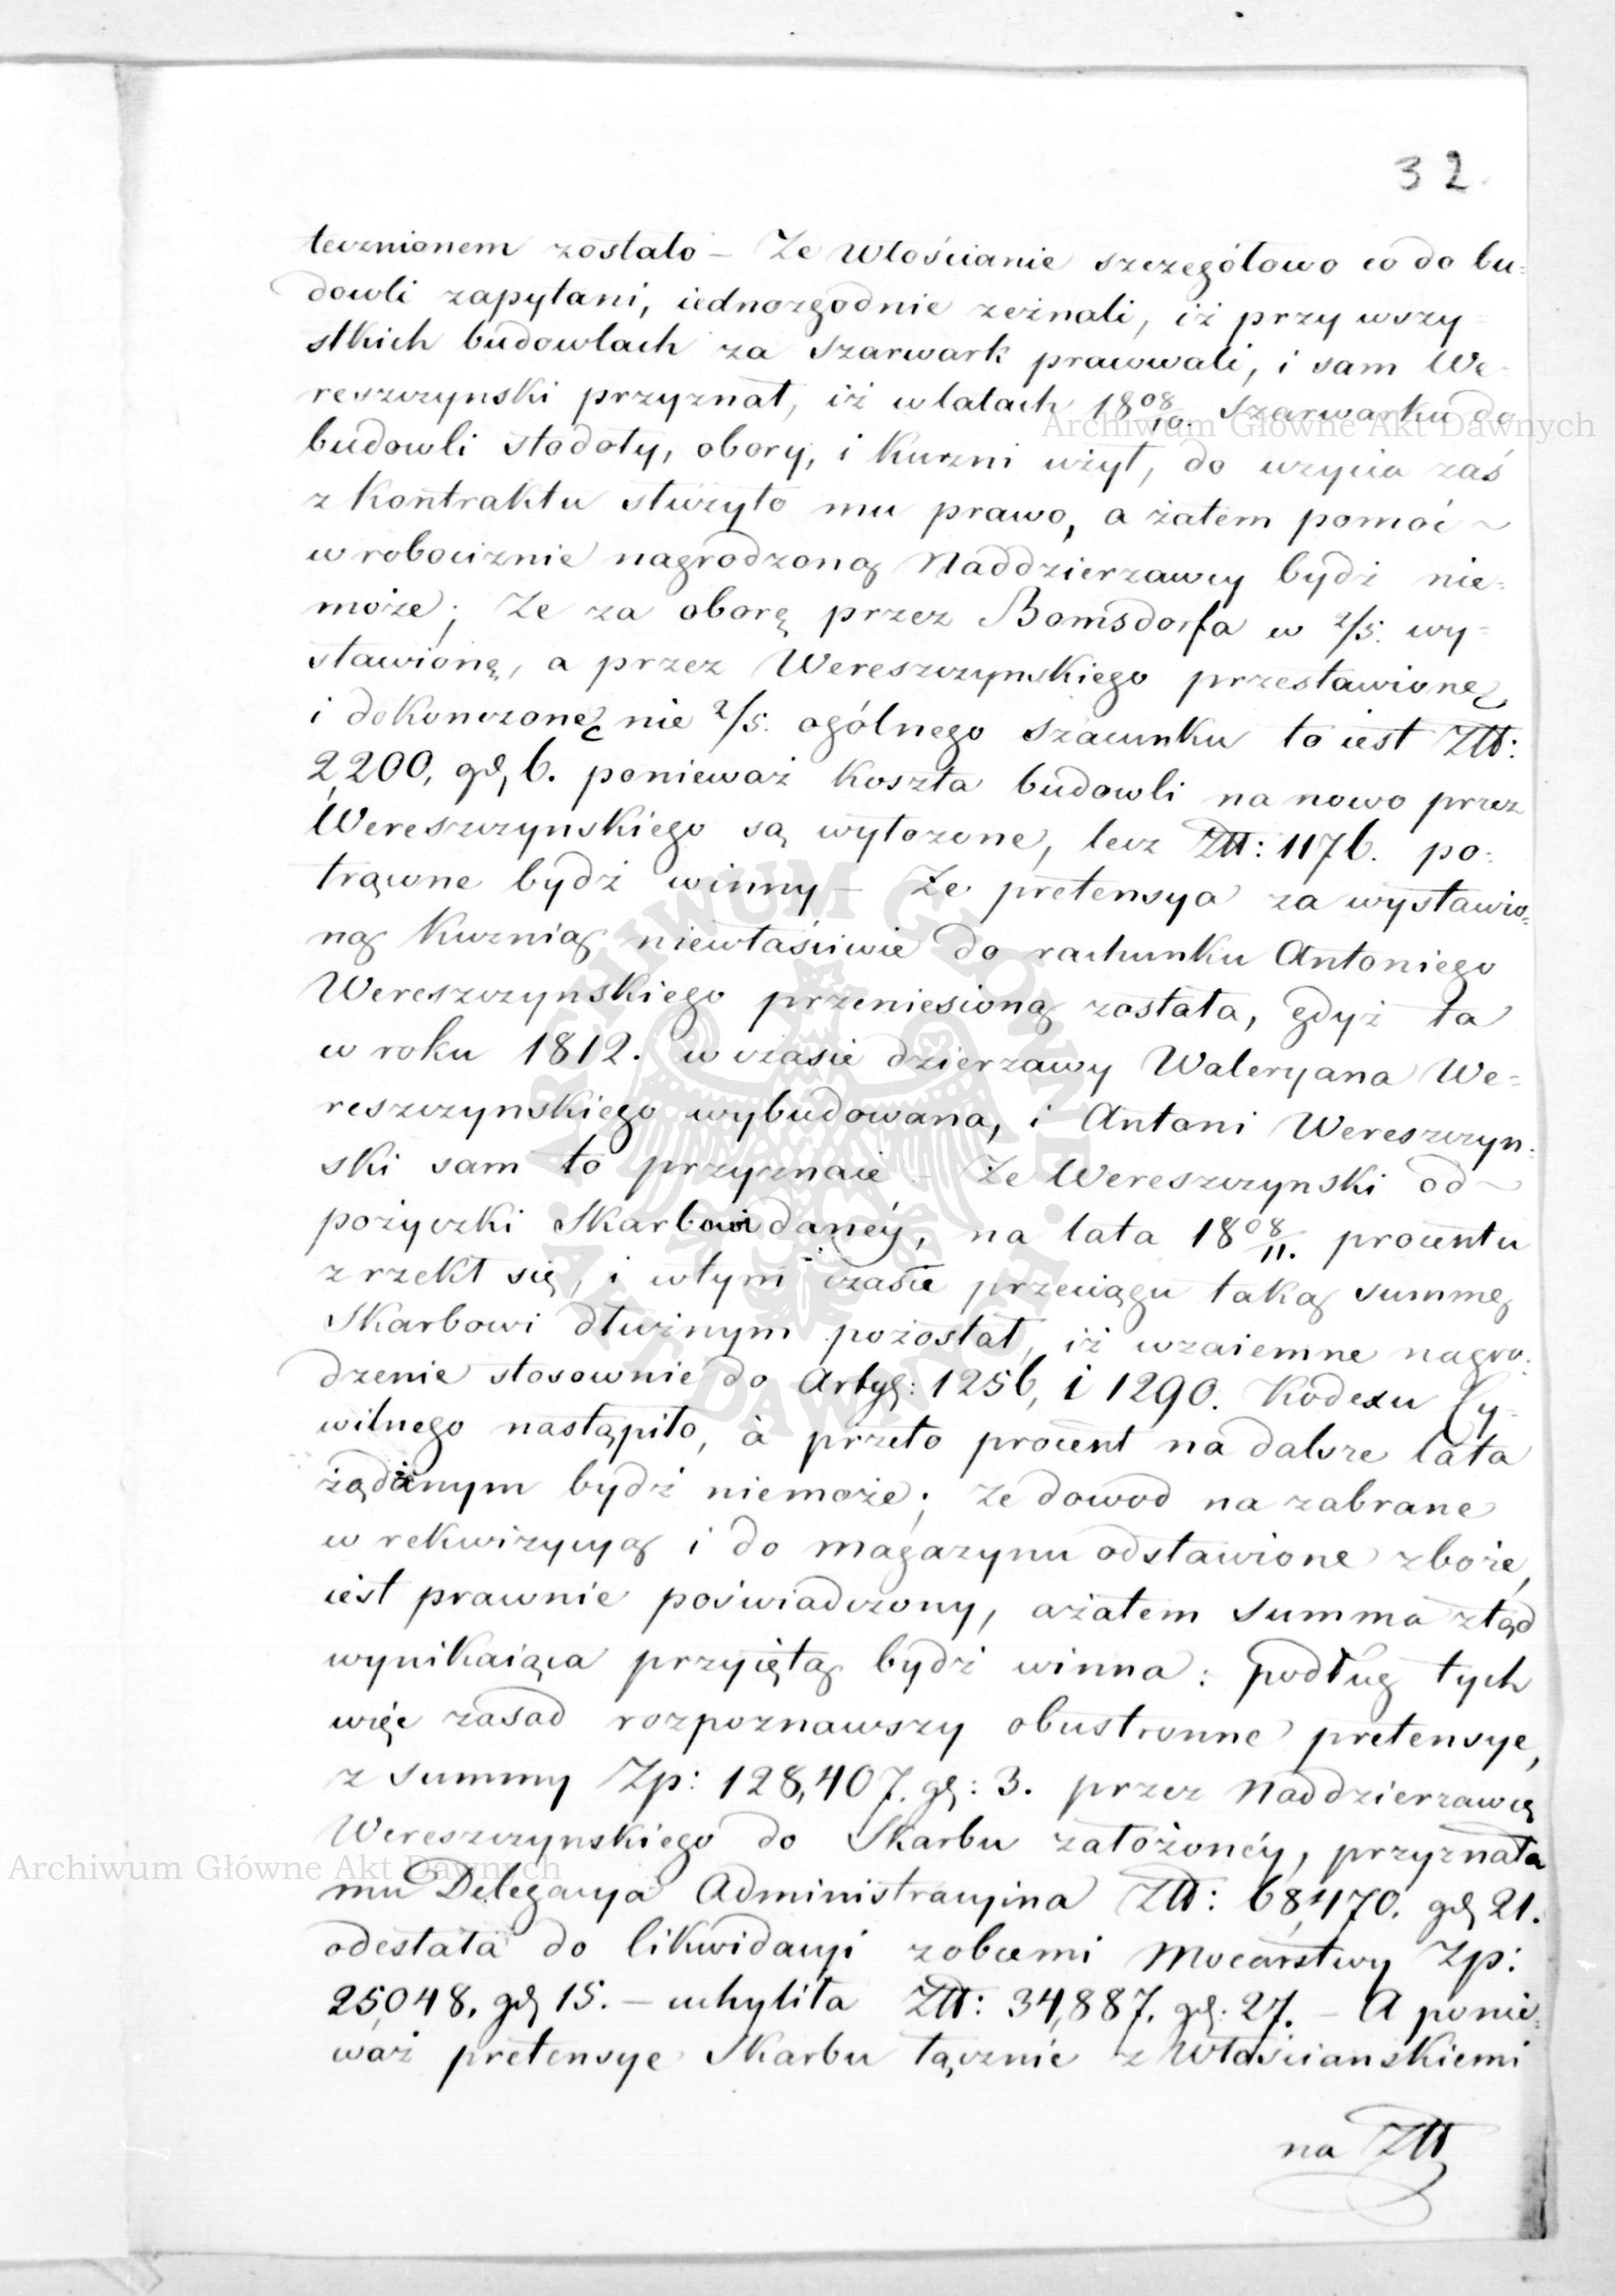 32.
tecznionem zostało – Że Włościanie szczegółowo co do bu=
dowli zapytani, iednozgodnie zeznali, iż przy wszy=
stkich budowlach za szarwark pracowali, i sam We=
reszczynski przyznał, iż w latach 1808/10. szarwarku do
budowli stodoły, obory, i Kuzni użył, do użycia zaś
z Kontraktu służyło mu prawo, a zatem pomoc ~
w robociznie nagrodzoną Naddzierzawcy bydź nie=
może; Że za oborę przez Bomsdorfa w 2/5. wy=
stawionę, a przez Wereszczynskiego przestawionę
i dokonczonę nie 2/5. ogólnego szacunku to iest Złł:
2,200, gl, 6. ponieważ koszta budowli na nowo przez
Wereszczynskiego są wyłożone, lecz Złł: 1176. po=
trącone bydź winny – Że pretensya za wystawio=
ną Kuznią niewłaściwie do rachunku Antoniego
Wereszczynskiego przeniesioną została, gdyż ta
w roku 1812. w czasie dzierzawy Waleryana We=
reszczynskiego wybudowana, i Antoni Wereszczyn=
ski sam to przyznaie – Że Wereszczynski od ~
pożyczki Skarbowi daney, na lata 1808/11. procentu
zrzekł się, i w tym czasie przeciągu taką summę
Skarbowi dłużnym pozostał, iż wzaiemne nagro=
dzenie stosownie do Artyg: 1256, i 1290. Kodexu Cy=
wilnego nastąpiło, à przeto procent na dalsze lata
żądanym bydź niemoże; Że dowod na zabrane
w rekwizycyą i do magazynu odstawione zboże,
iest prawnie poświadczony, a zatem summa ztąd
wynikaiąca przyiętą bydź winna: podług tych
więc zasad rozpoznawszy obustronne pretensye,
z summy Zp: 128,407. gl: 3. przez Naddzierzawcę
Wereszczynskiego do Skarbu założoney, przyznała
mu Delegacya Administracyina Złł: 68,470. gl, 21.
odesłała do likwidacyi z obcemi Mocarstwy Zp:
25,048. gl, 15. – uchyliła Złł: 34,887. gl: 27. – A ponie=
waż pretensye Skarbu łącznie z Włościanskiemi
na Złł
Archiwum Główne Akt Dawnych
Archiwum Główne Akt Dawnych
ARCHIWUM GŁÓWNE AKT DAWNYCH